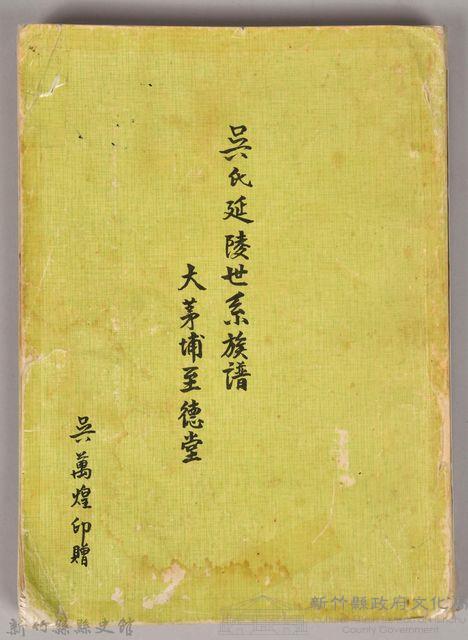 吳氏延陵世系族譜
大茅埔至德堂
吳萬煌印贈
新竹縣縣史館
新竹縣政府文化
County Government